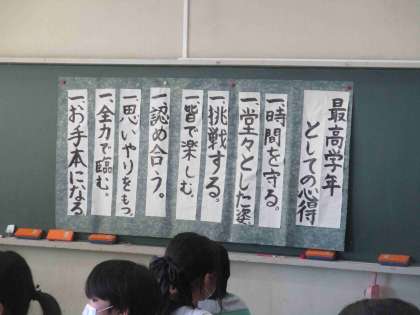 最高学年
としての心得
一、時間を守る。
一、堂々とした姿
一、挑戦する。
一、皆で楽しむ。
一、認め合う。
一、思いやりをもつ。
一、全力で臨む。
一、お手本になる